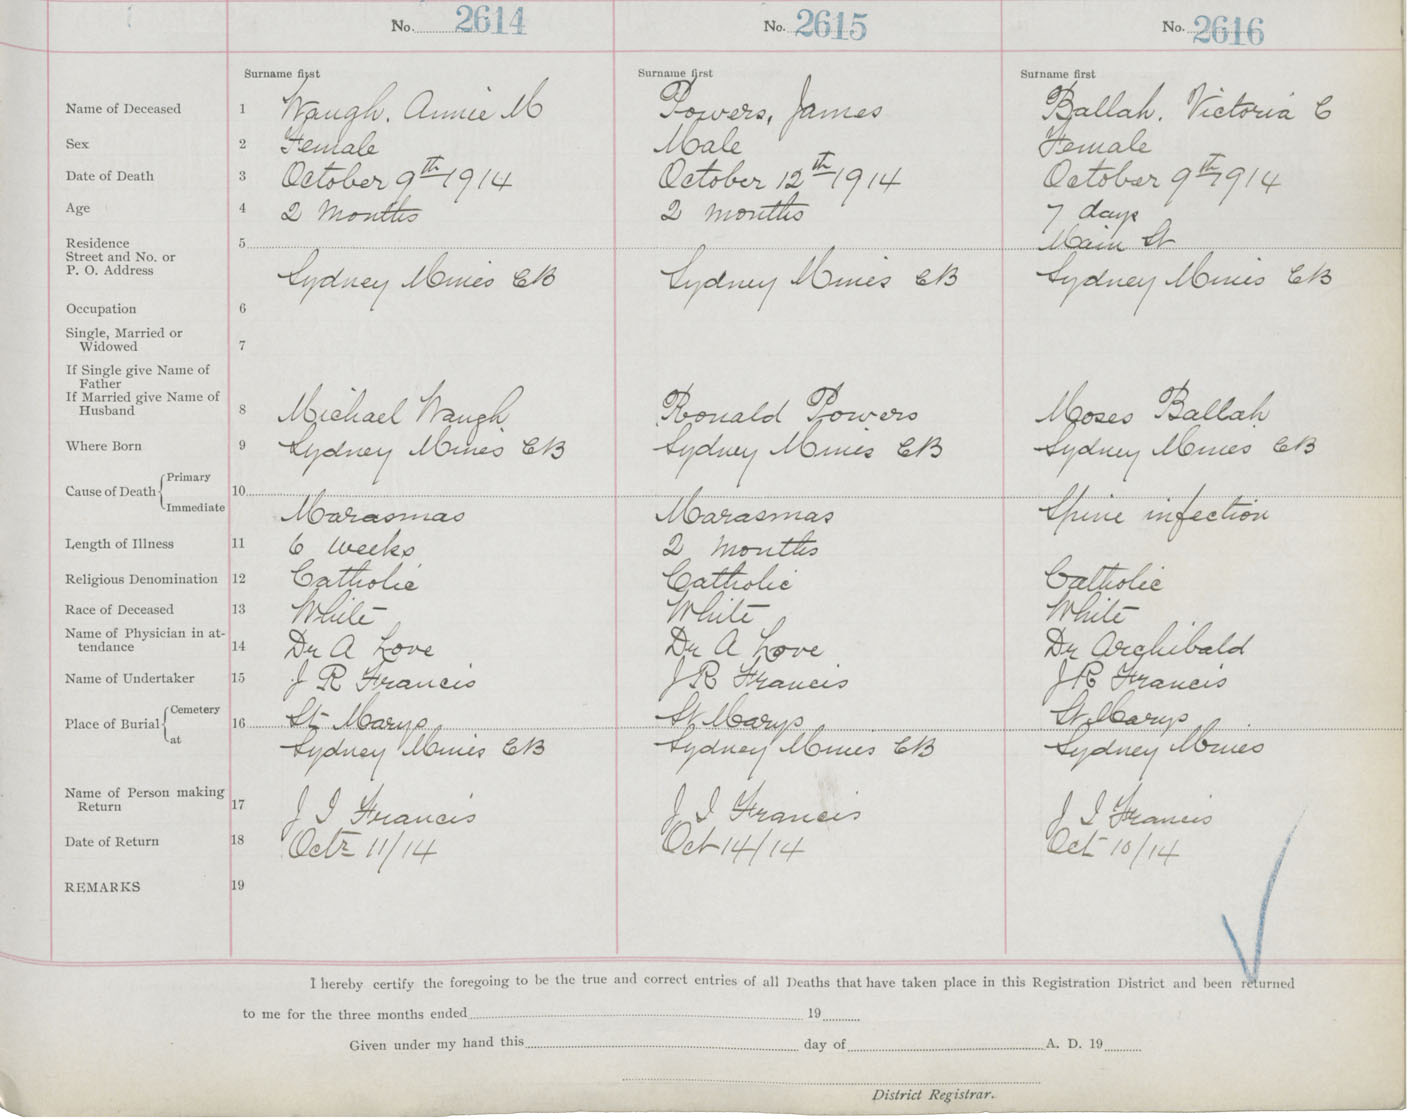 No. 2614 No. 2615 No. 2616
Surname first Surname first Surname first
Name of Deceased 1 Waugh, Annie M Powers, James Ballah, Victoria C
Sex 2 Female Male Female
Date of Death 3 October 9th 1914 October 12th 1914 October 9th 1914
Age 4 2 months 2 months 7 days
Residence 5 Main St
Street and No. or
P. O. Address Sydney Mines CB Sydney Mines CB Sydney Mines CB
Occupation 6
Single, Married or
Widowed 7
If Single give Name of
Father
If Married give Name of
Husband 8 Michael Waugh Ronald Powers Moses Ballah
Where Born 9 Sydney Mines CB Sydney Mines CB Sydney Mines CB
Primary
Cause of Death 10
Immediate Marasmas Marasmas Spine infection
Length of Illness 11 6 weeks 2 months
Religious Denomination 12 Catholic Catholic Catholic
Race of Deceased 13 White White White
Name of Physician in at-
tendance 14 Dr A Love Dr A Love Dr Archibald
Name of Undertaker 15 J R Francis J R Francis J R Francis
Cemetery
Place of Burial 16 St Marys St Marys St Marys
at Sydney Mines CB Sydney Mines CB Sydney Mines
Name of Person making
Return 17 J I Francis J I Francis J I Francis
Date of Return 18 Octr 11/14 Oct 14/14 Oct 10/14
REMARKS 19
I hereby certify the foregoing to be the true and correct entries of all Deaths that have taken place in this Registration District and been returned
to me for the three months ended 19
Given under my hand this day of A. D. 19
District Registrar.